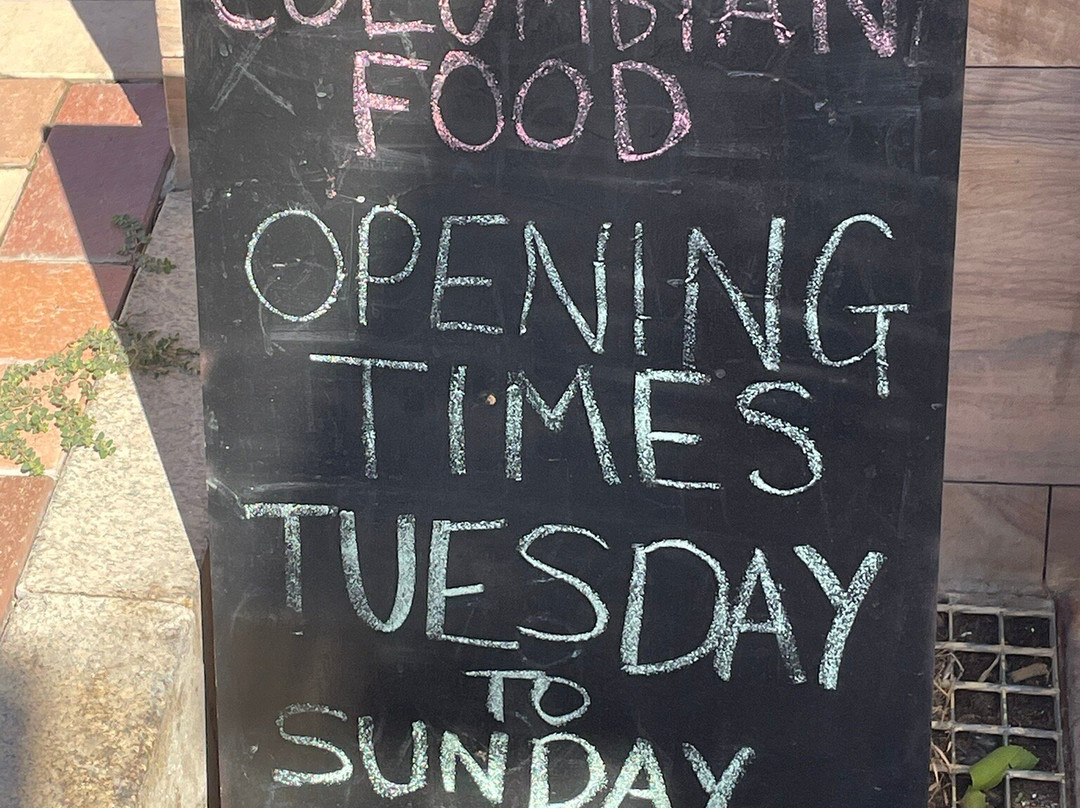 COLUMBIAN
FOOD
OPENING
TIMES
TUESDAY
TO
SUNDAY